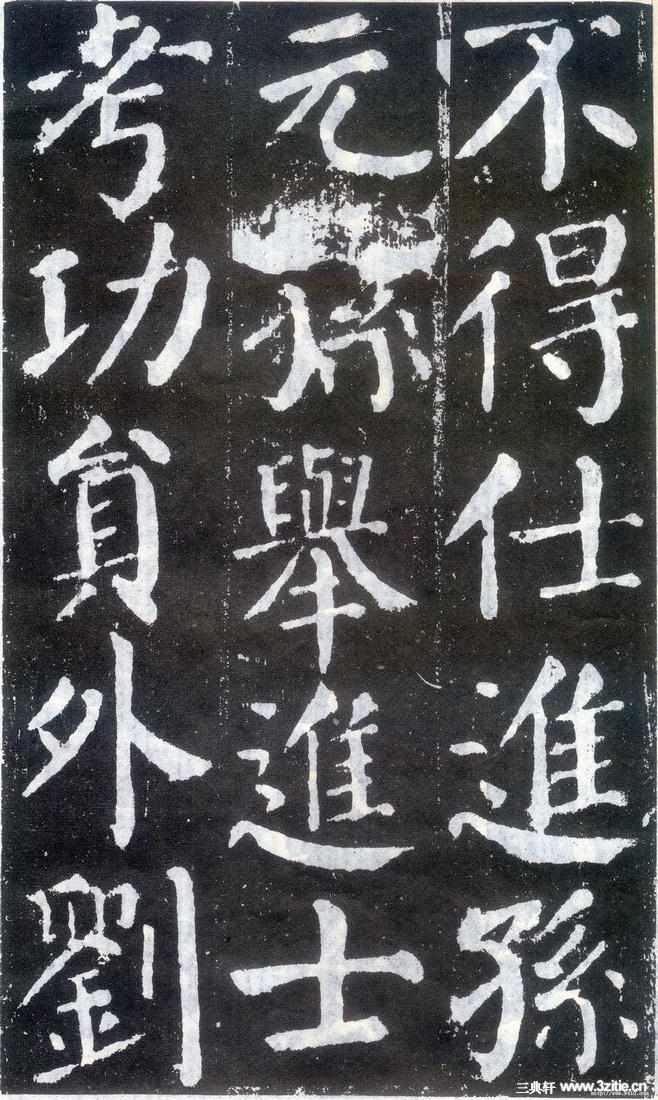 不得仕進孫
元孫舉進士
考功員外劉
三典轩 www.3zitie.cn